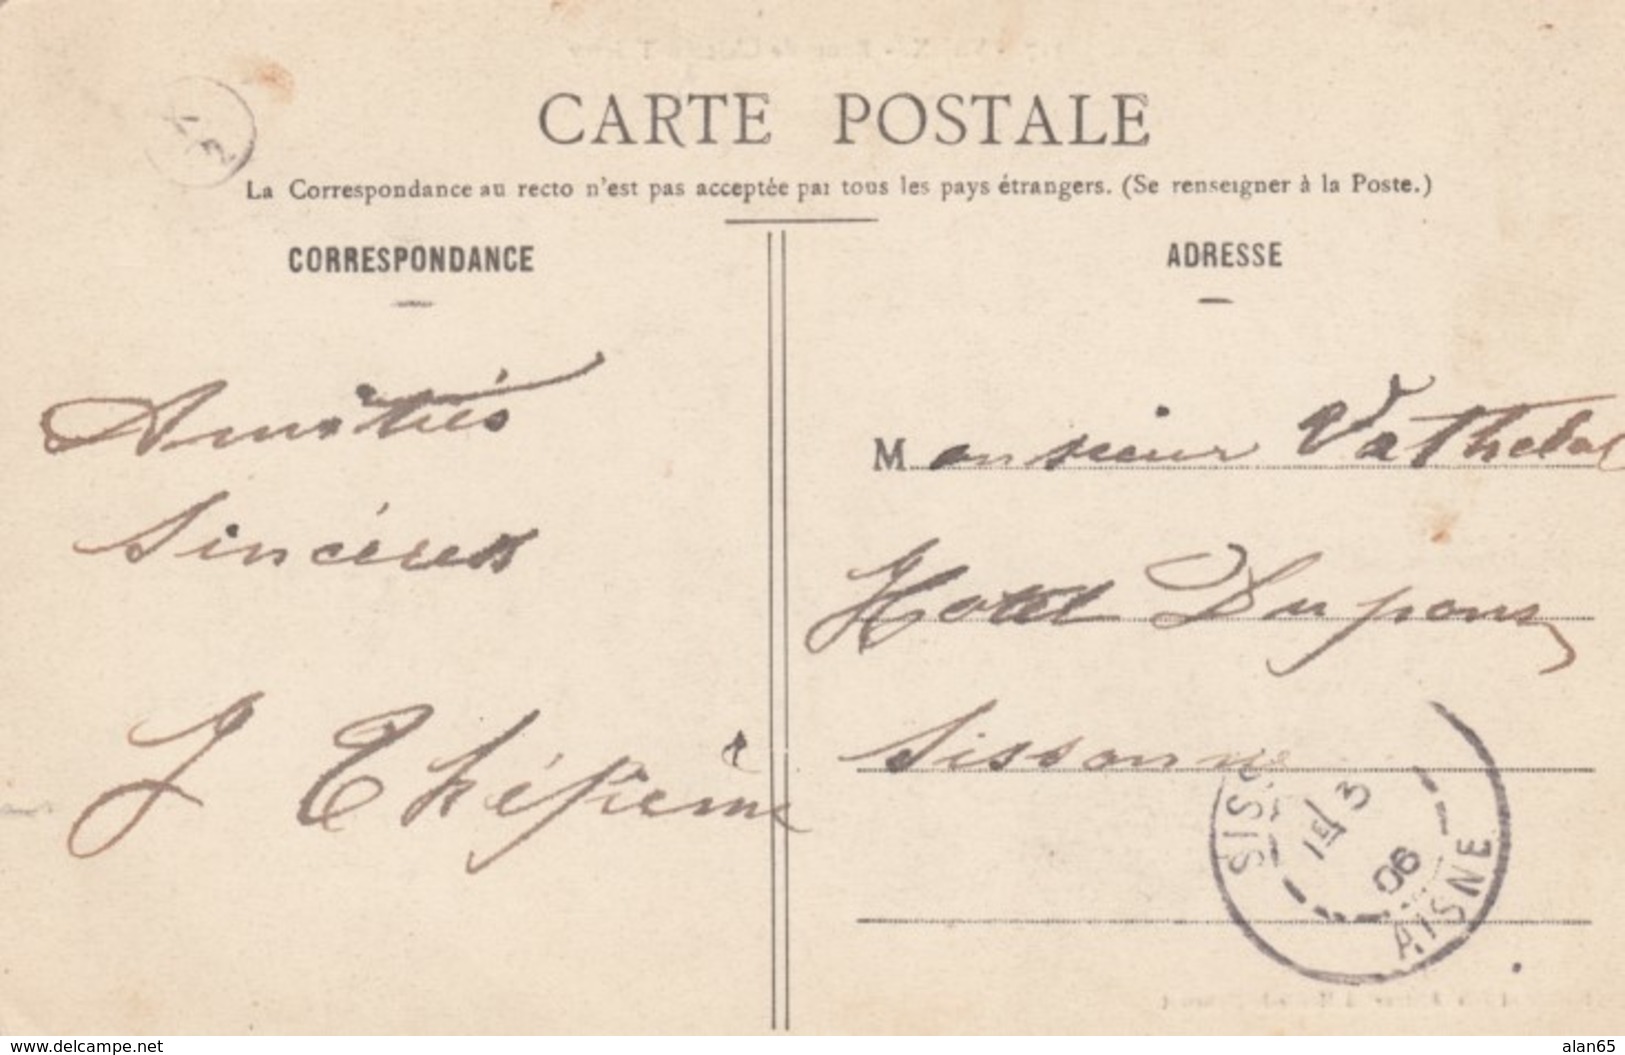 CARTE POSTALE
La Correspondance au recto n'est pas acceptée par tous les pays étrangers. (Se renseigner à la Poste.)
CORRESPONDANCE
ADRESSE
Amitiés
Sincères
J
Monsieur
Hotel
Sissonne
SISS
1ER/3
06
AISNE
www.delcampe.net
alan65